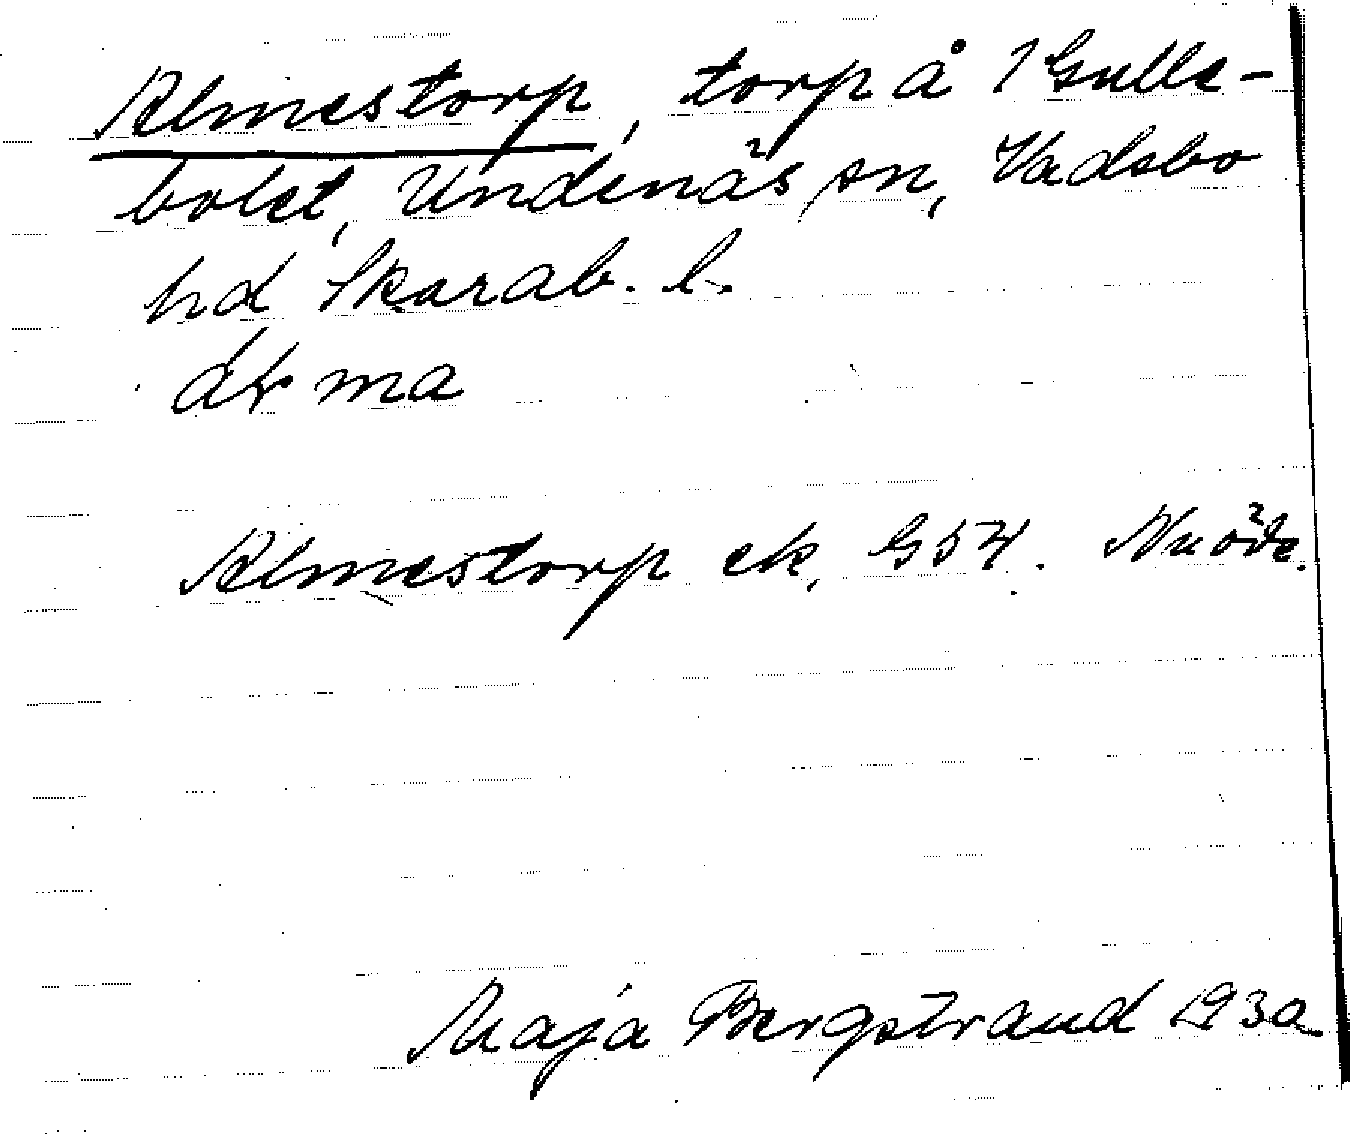 Almestorp, torp å 1 Gulle-
bolet, Undenäs sn, Vadsbo
hd Skarab. l.
Almestorp ek. G 54. Nu öde.
Maja Bergstrand 1930